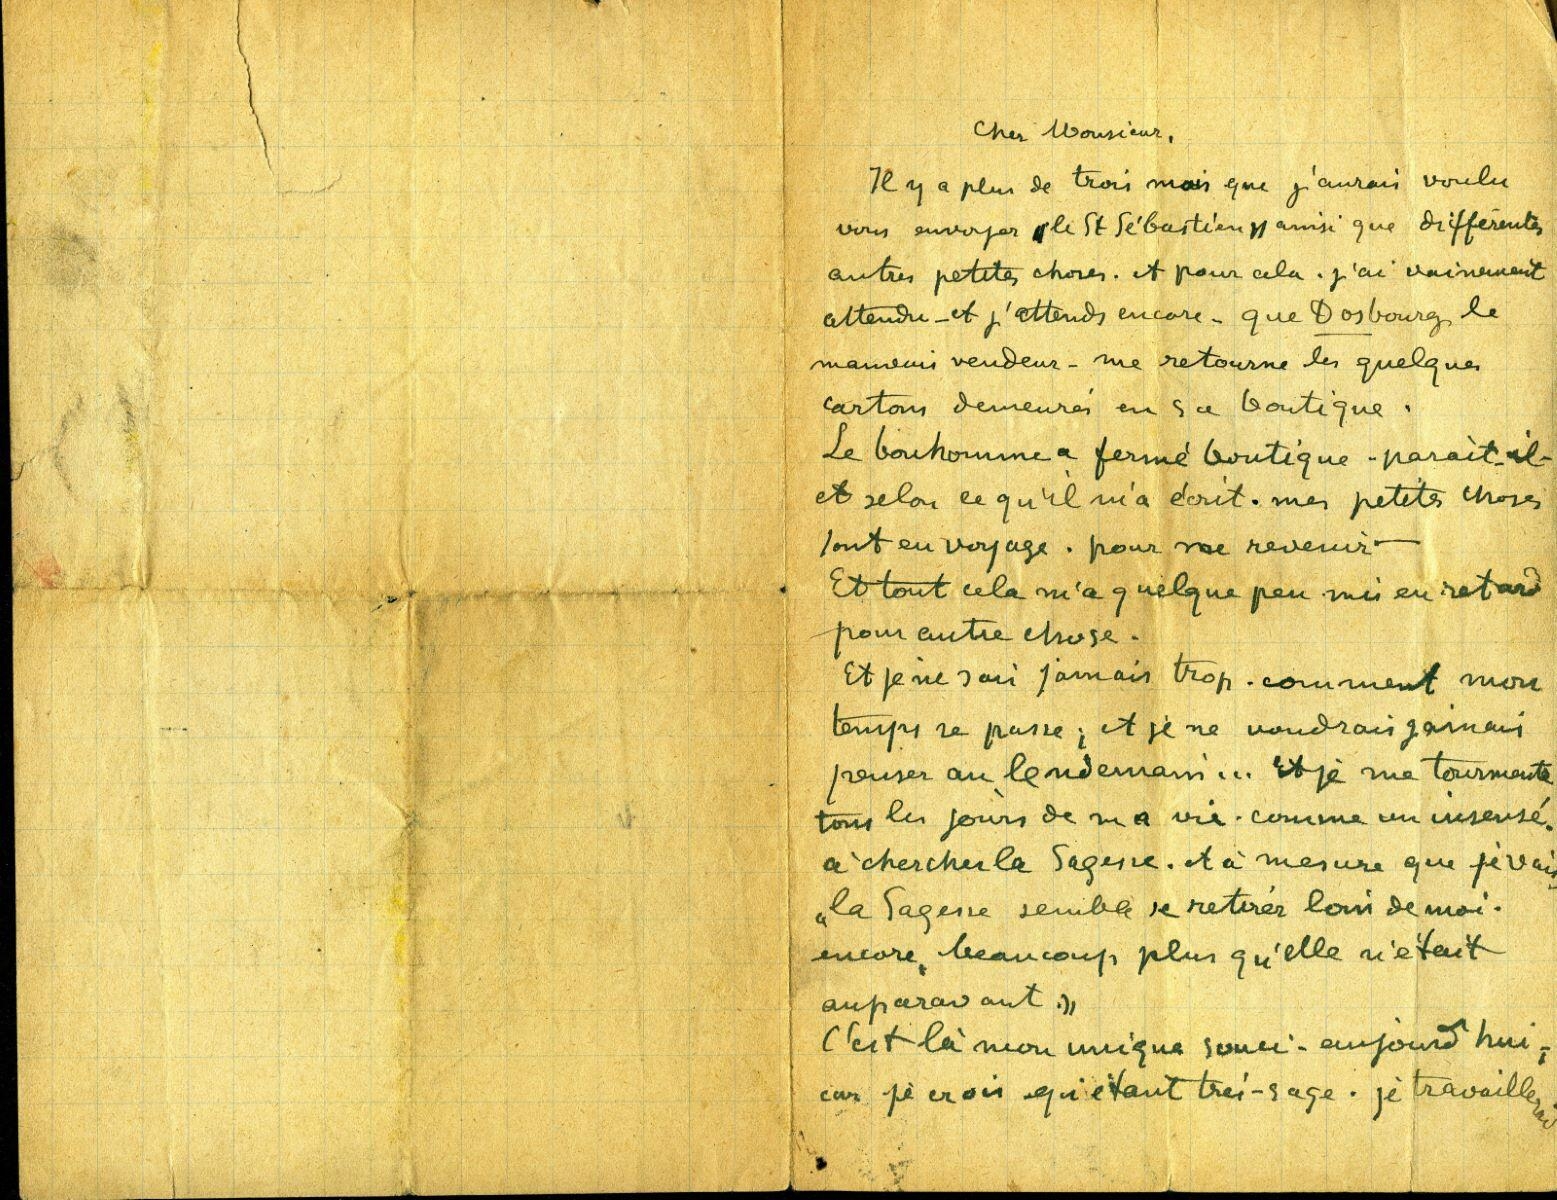 Cher Monsieur,
Il y a plus de trois mois que j'aurais voulu
vous envoyer "le St Sébastien" ainsi que différentes
autres petites choses. et pour cela. j'ai vainement
attendu - et j'attends encore - que Dosbourg le
mauvais vendeur - me retourne les quelques
cartons demeurés en sa boutique.
Le bonhomme a fermé boutique - parait-il -
et selon ce qu'il m'a écrit. mes petites choses
sont en voyage. pour me revenir —
Et tout cela m'a quelque peu mis en retard
pour autre chose.
Et je ne sais jamais trop. comment mon
temps se passe; et je ne voudrais jamais
penser au lendemain... Et je me tourmente
tous les jours de ma vie. comme un insensé.
à chercher la Sagesse. et à mesure que je vais
"la Sagesse semble se retirer loin de moi.
encore, beaucoup plus qu'elle n'était
auparavant."
C'est là mon unique souci - aujourd'hui;
car je crois qu'étant très-sage. je travaillerai